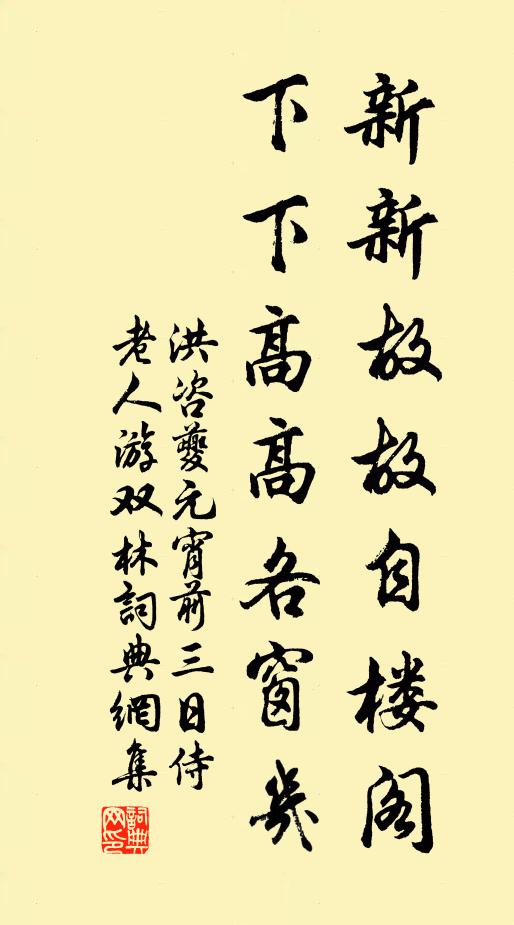 新新故故自楼阁
下下高高各窗几
洪咨夔元宵前三日侍
老人游双林詞典網集
詞典网印